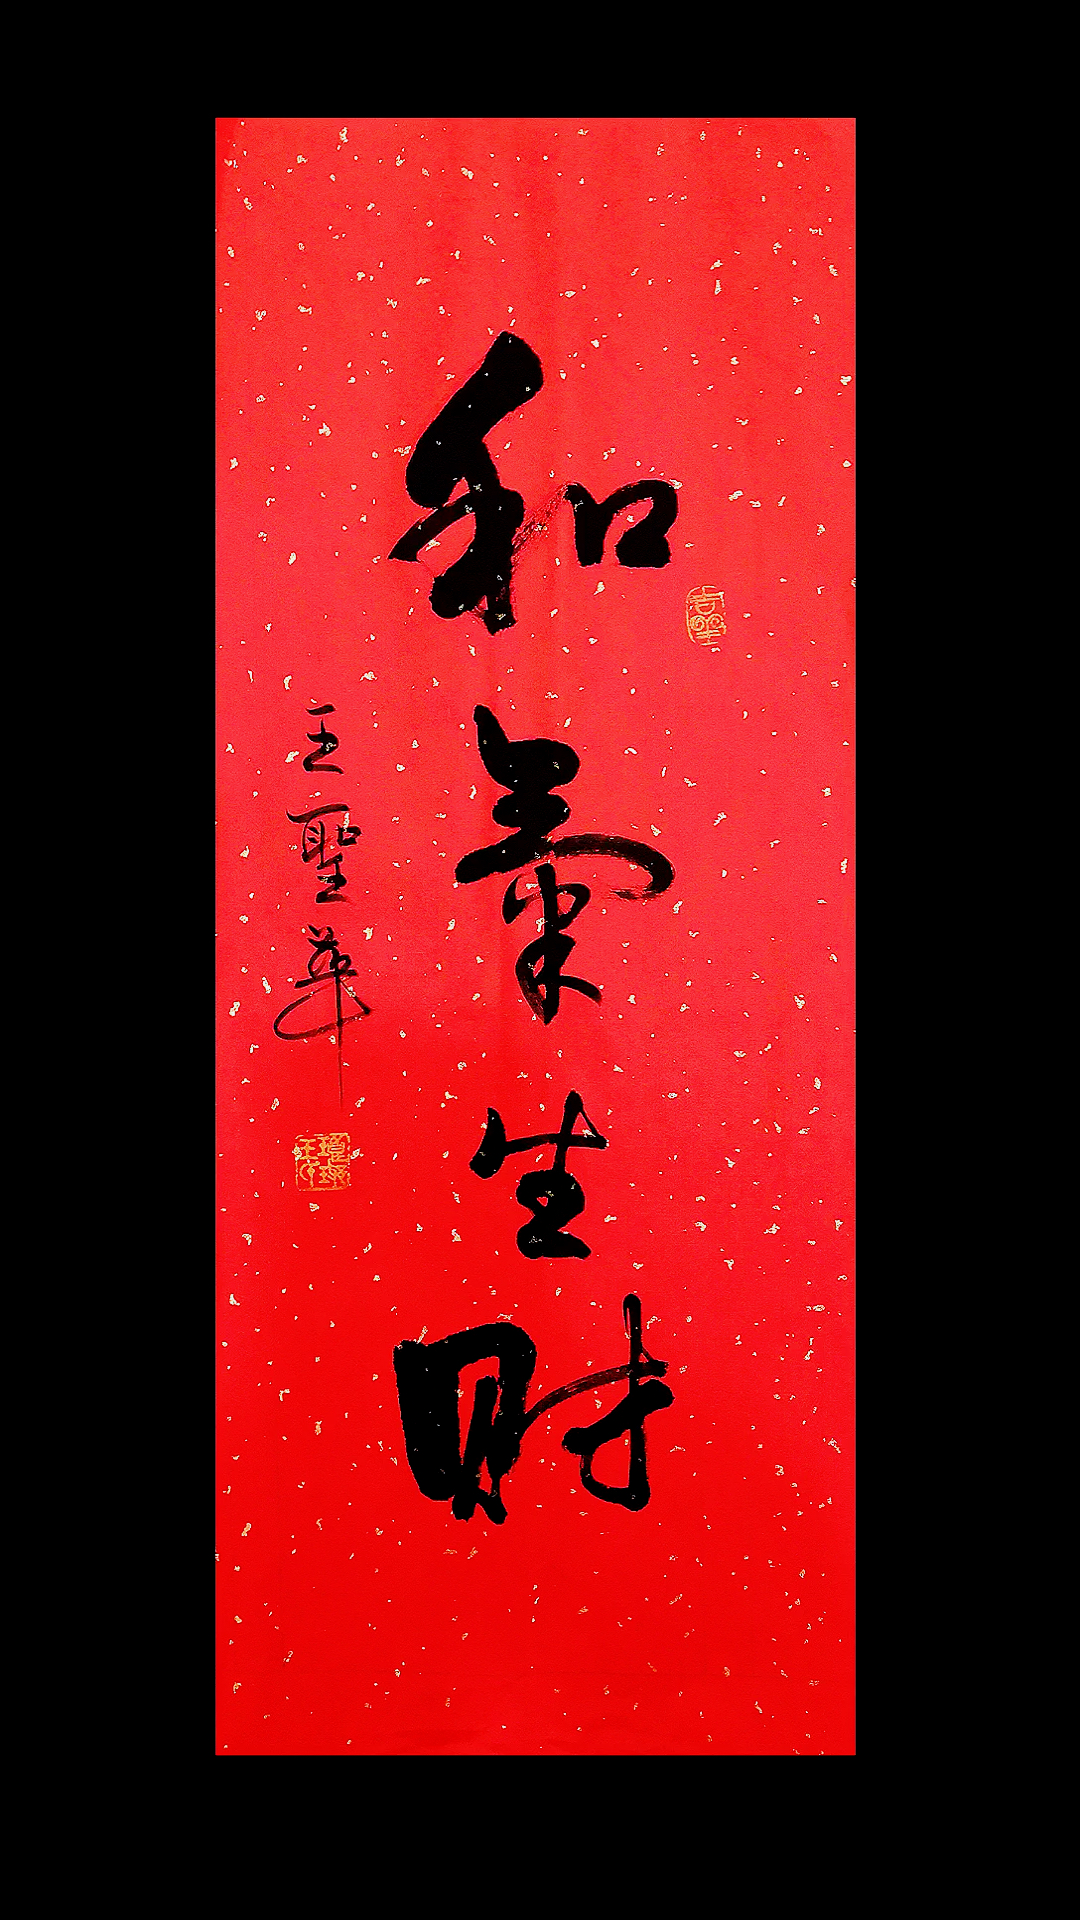 和氣生財
王聖華